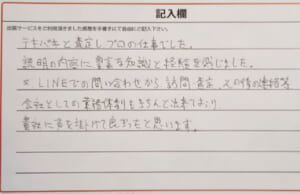 記入欄
出張サービスをご利用頂きました感想を手書きにて自由にご記入下さい。
テキパキと査定しプロの仕事でした。
説明の内容に豊富な知識と経験を感じました。
又、LINEでの問い合わせから訪問・査定、その後の連絡等
会社としての業務体制もきちんと出来ており
貴社に声を掛けて良かったと思います。